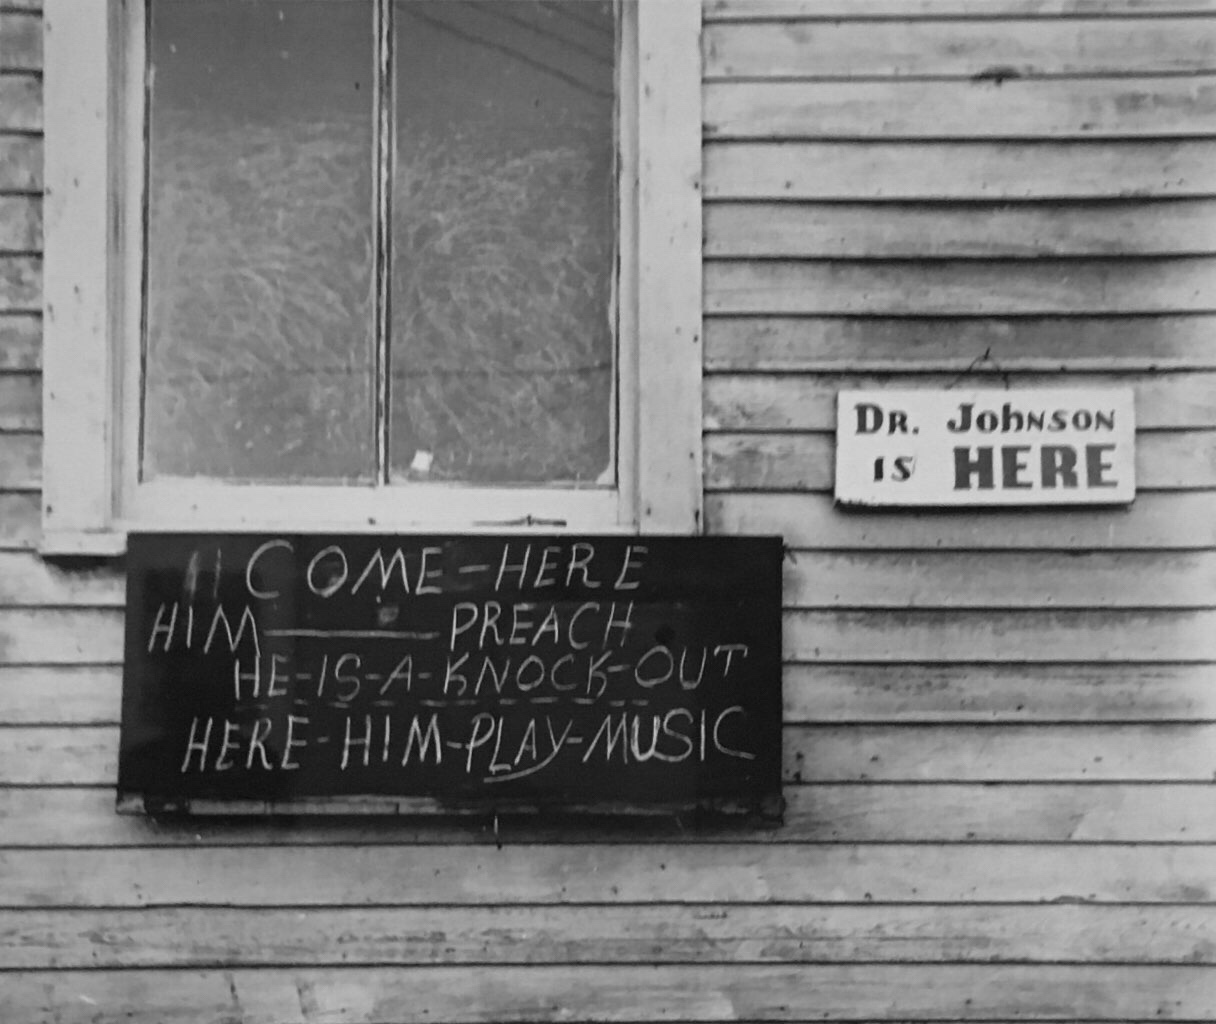 COME-HERE
HIM — PREACH
HE-IS-A-KNOCK-OUT
HERE-HIM-PLAY-MUSIC
DR. JOHNSON
IS HERE